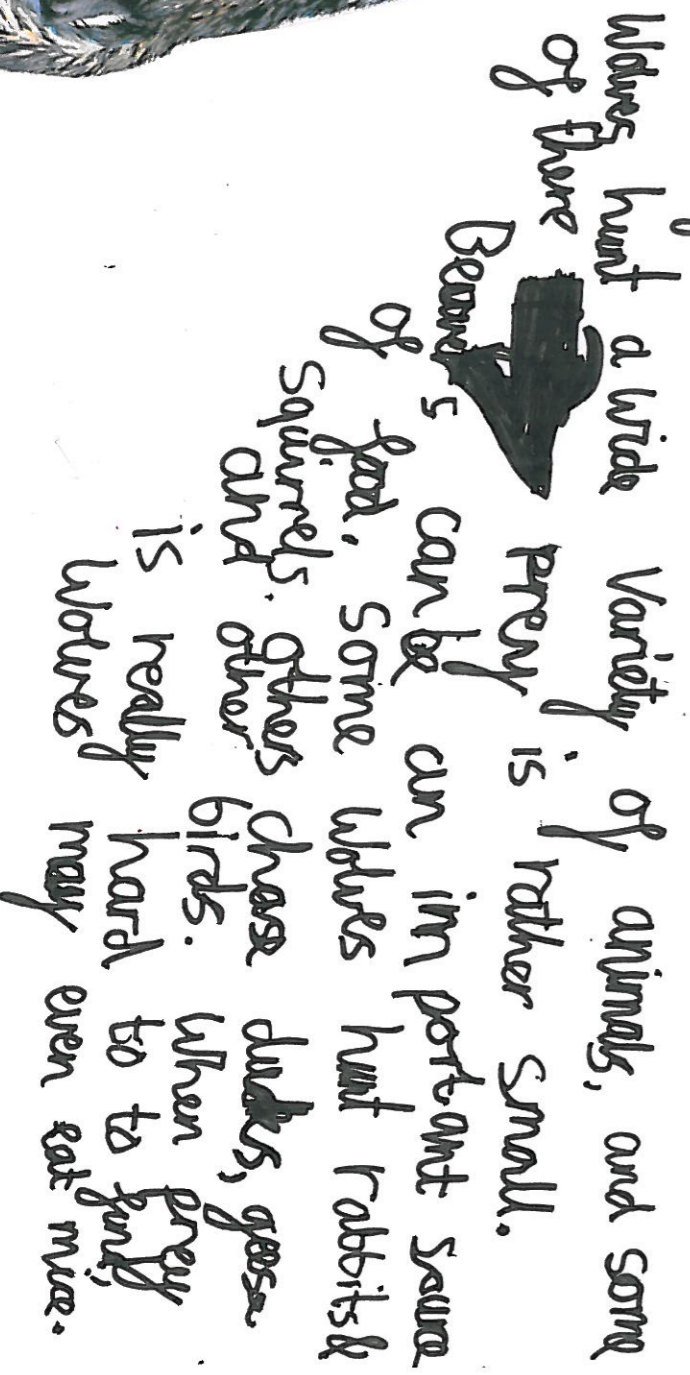 Wolves hunt a wide variety of animals, and some
of there prey is rather small.
Beavers can be an important source
of food. Some wolves hunt rabbits &
squirrels. others chase ducks, geese
and other birds. When prey
is really hard to to find,
wolves may even eat mice.